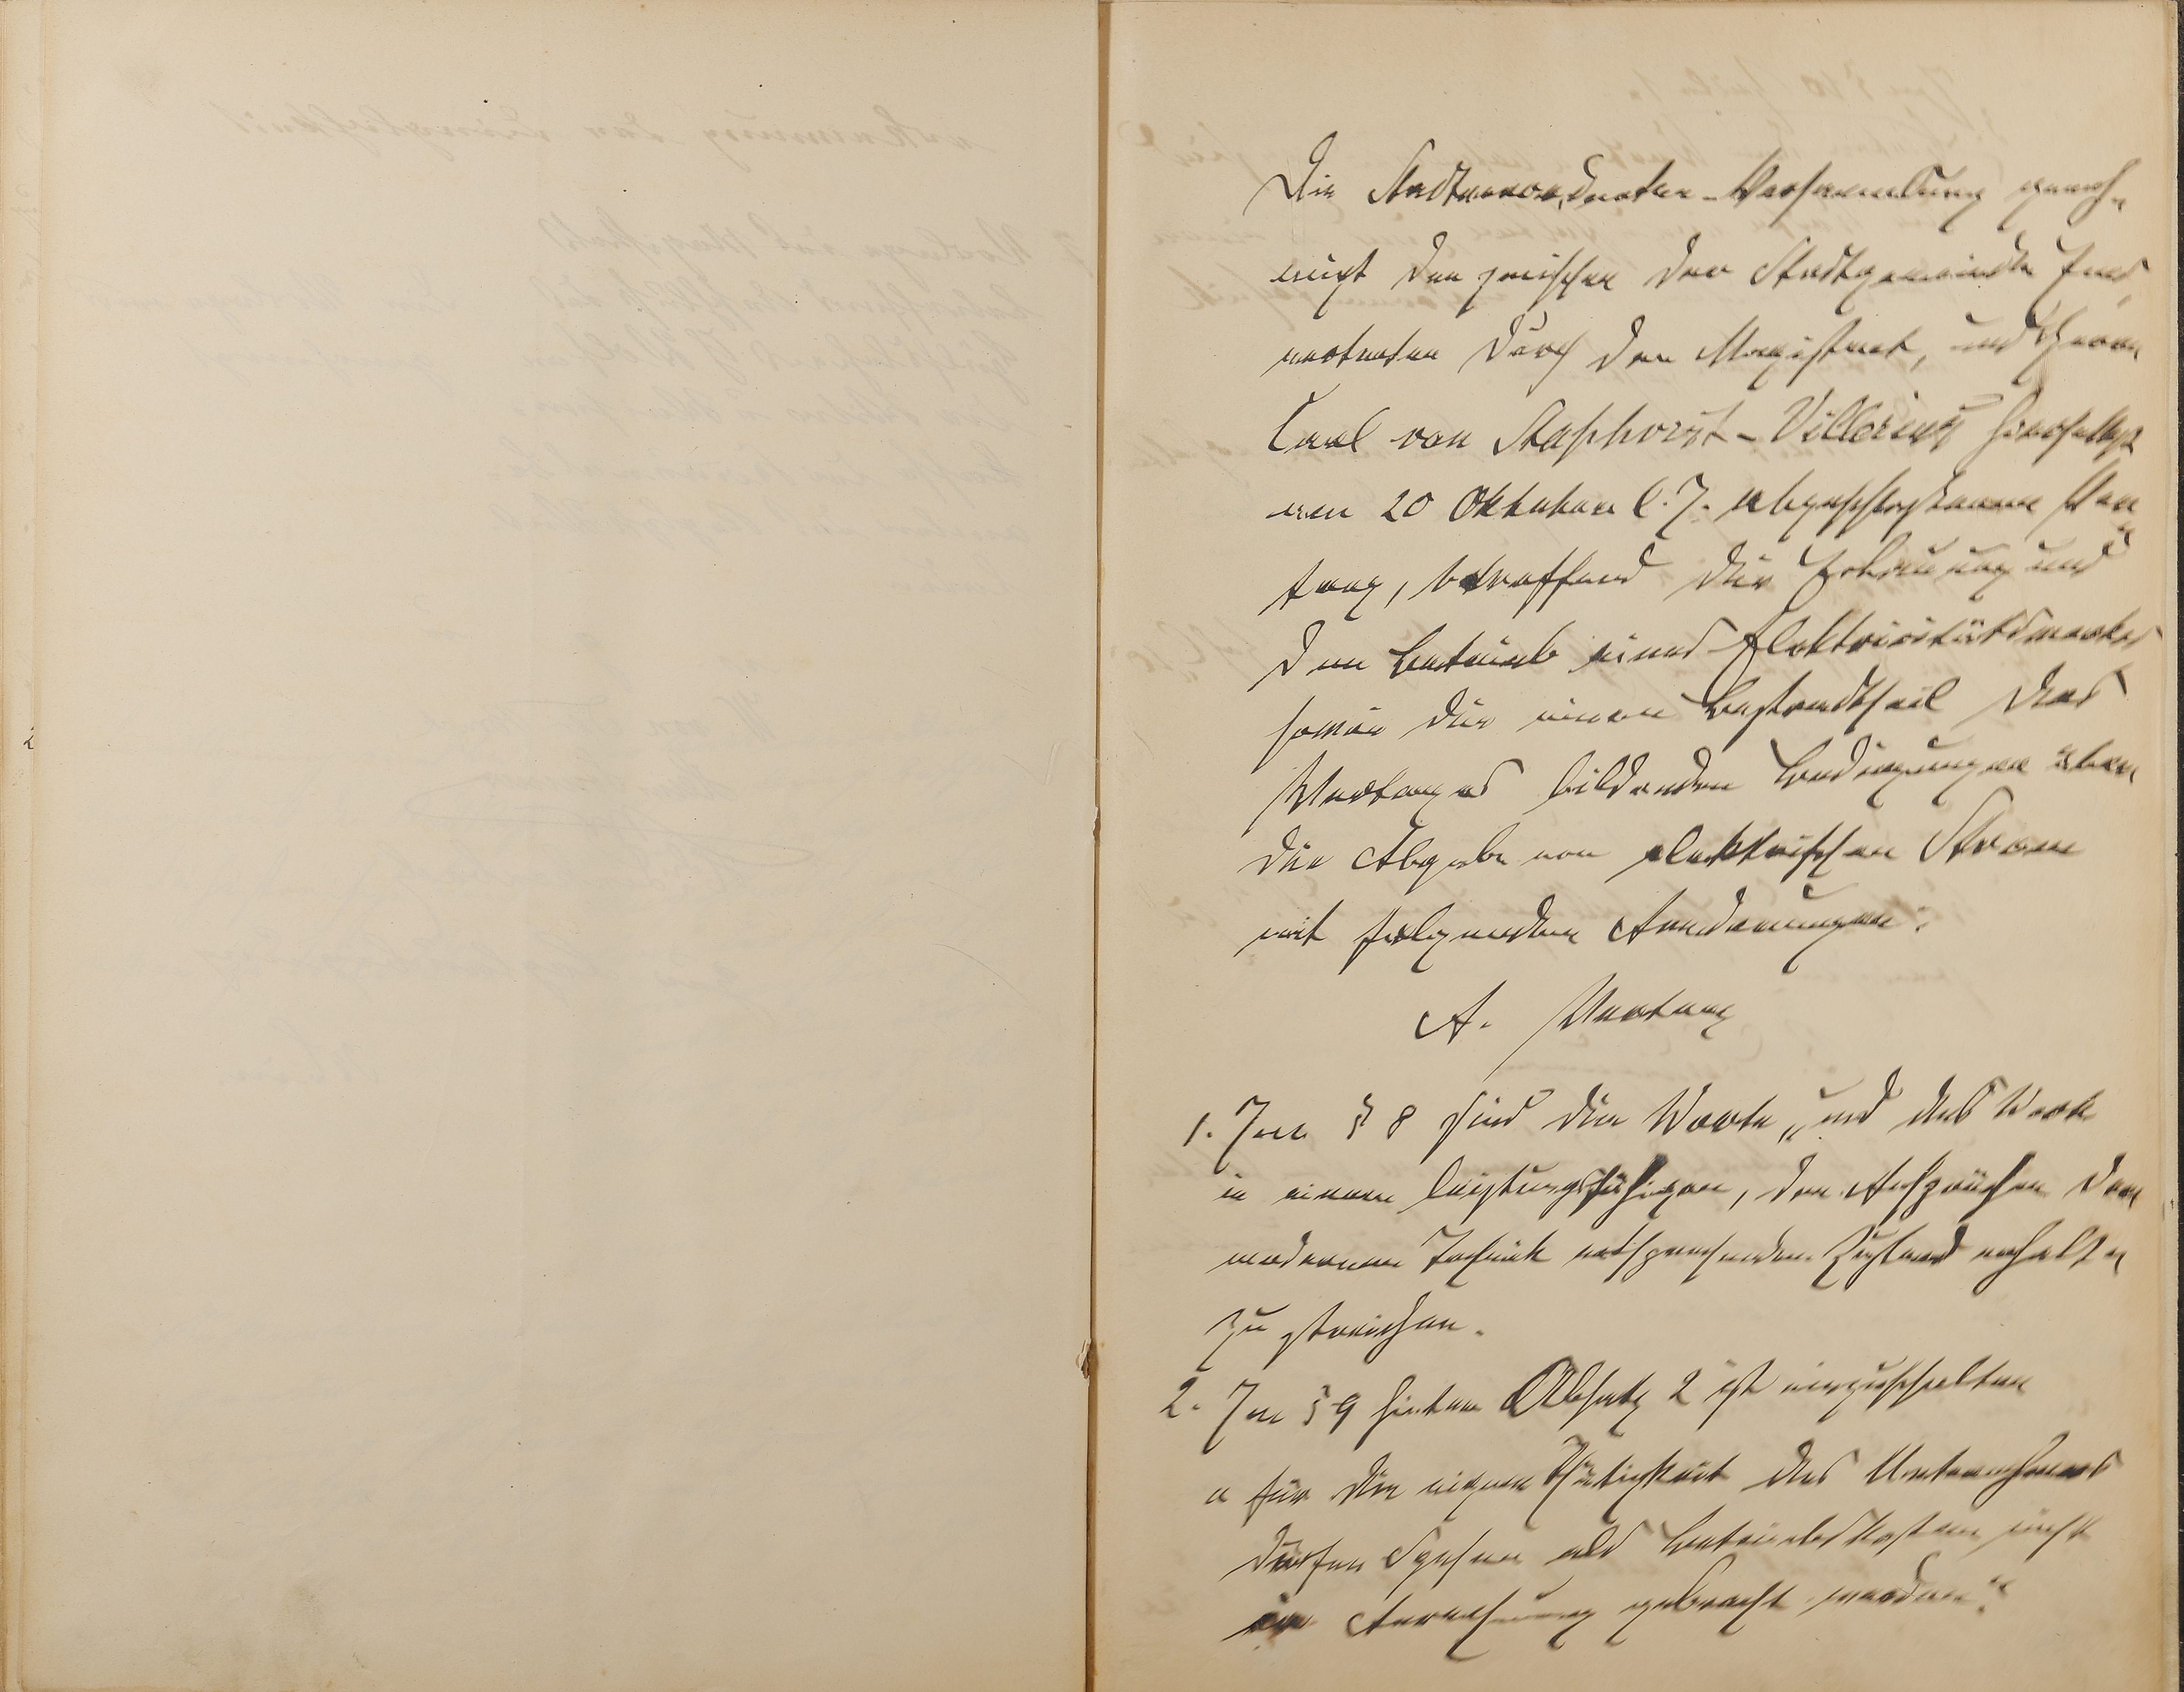 Die Stadtverordneten-Versammlung geneh-
migt den zwischen der Stadtgemeinde hier,
vertreten durch den Magistrat, und Herrn
Carl von Staphorst-Villerius hierselbst
am 20 Oktober l. J. abgeschlossenen Ver-
trag, betreffend die Erbauung und
den Betrieb eines Elektricitätswerkes
sowie die einen Bestandtheil des
Vertrages bildenden Bedingungen über
die Abgabe von elektrischen Strom
mit folgenden Aenderungen:
A. Vertrag
1. Im § 8 sind die Worte „und das Werk
in einem leistungsfähigen, den Ansprüchen der
modernen Technik entsprechenden Zustand erhalten
zu streichen.
2. Im § 9 hinter Absatz 2 ist einzuschalten
„für die eigene Thätigkeit des Unternehmers
dürfen Spesen als Betriebskosten nicht
in Anrechnung gebracht werden“.